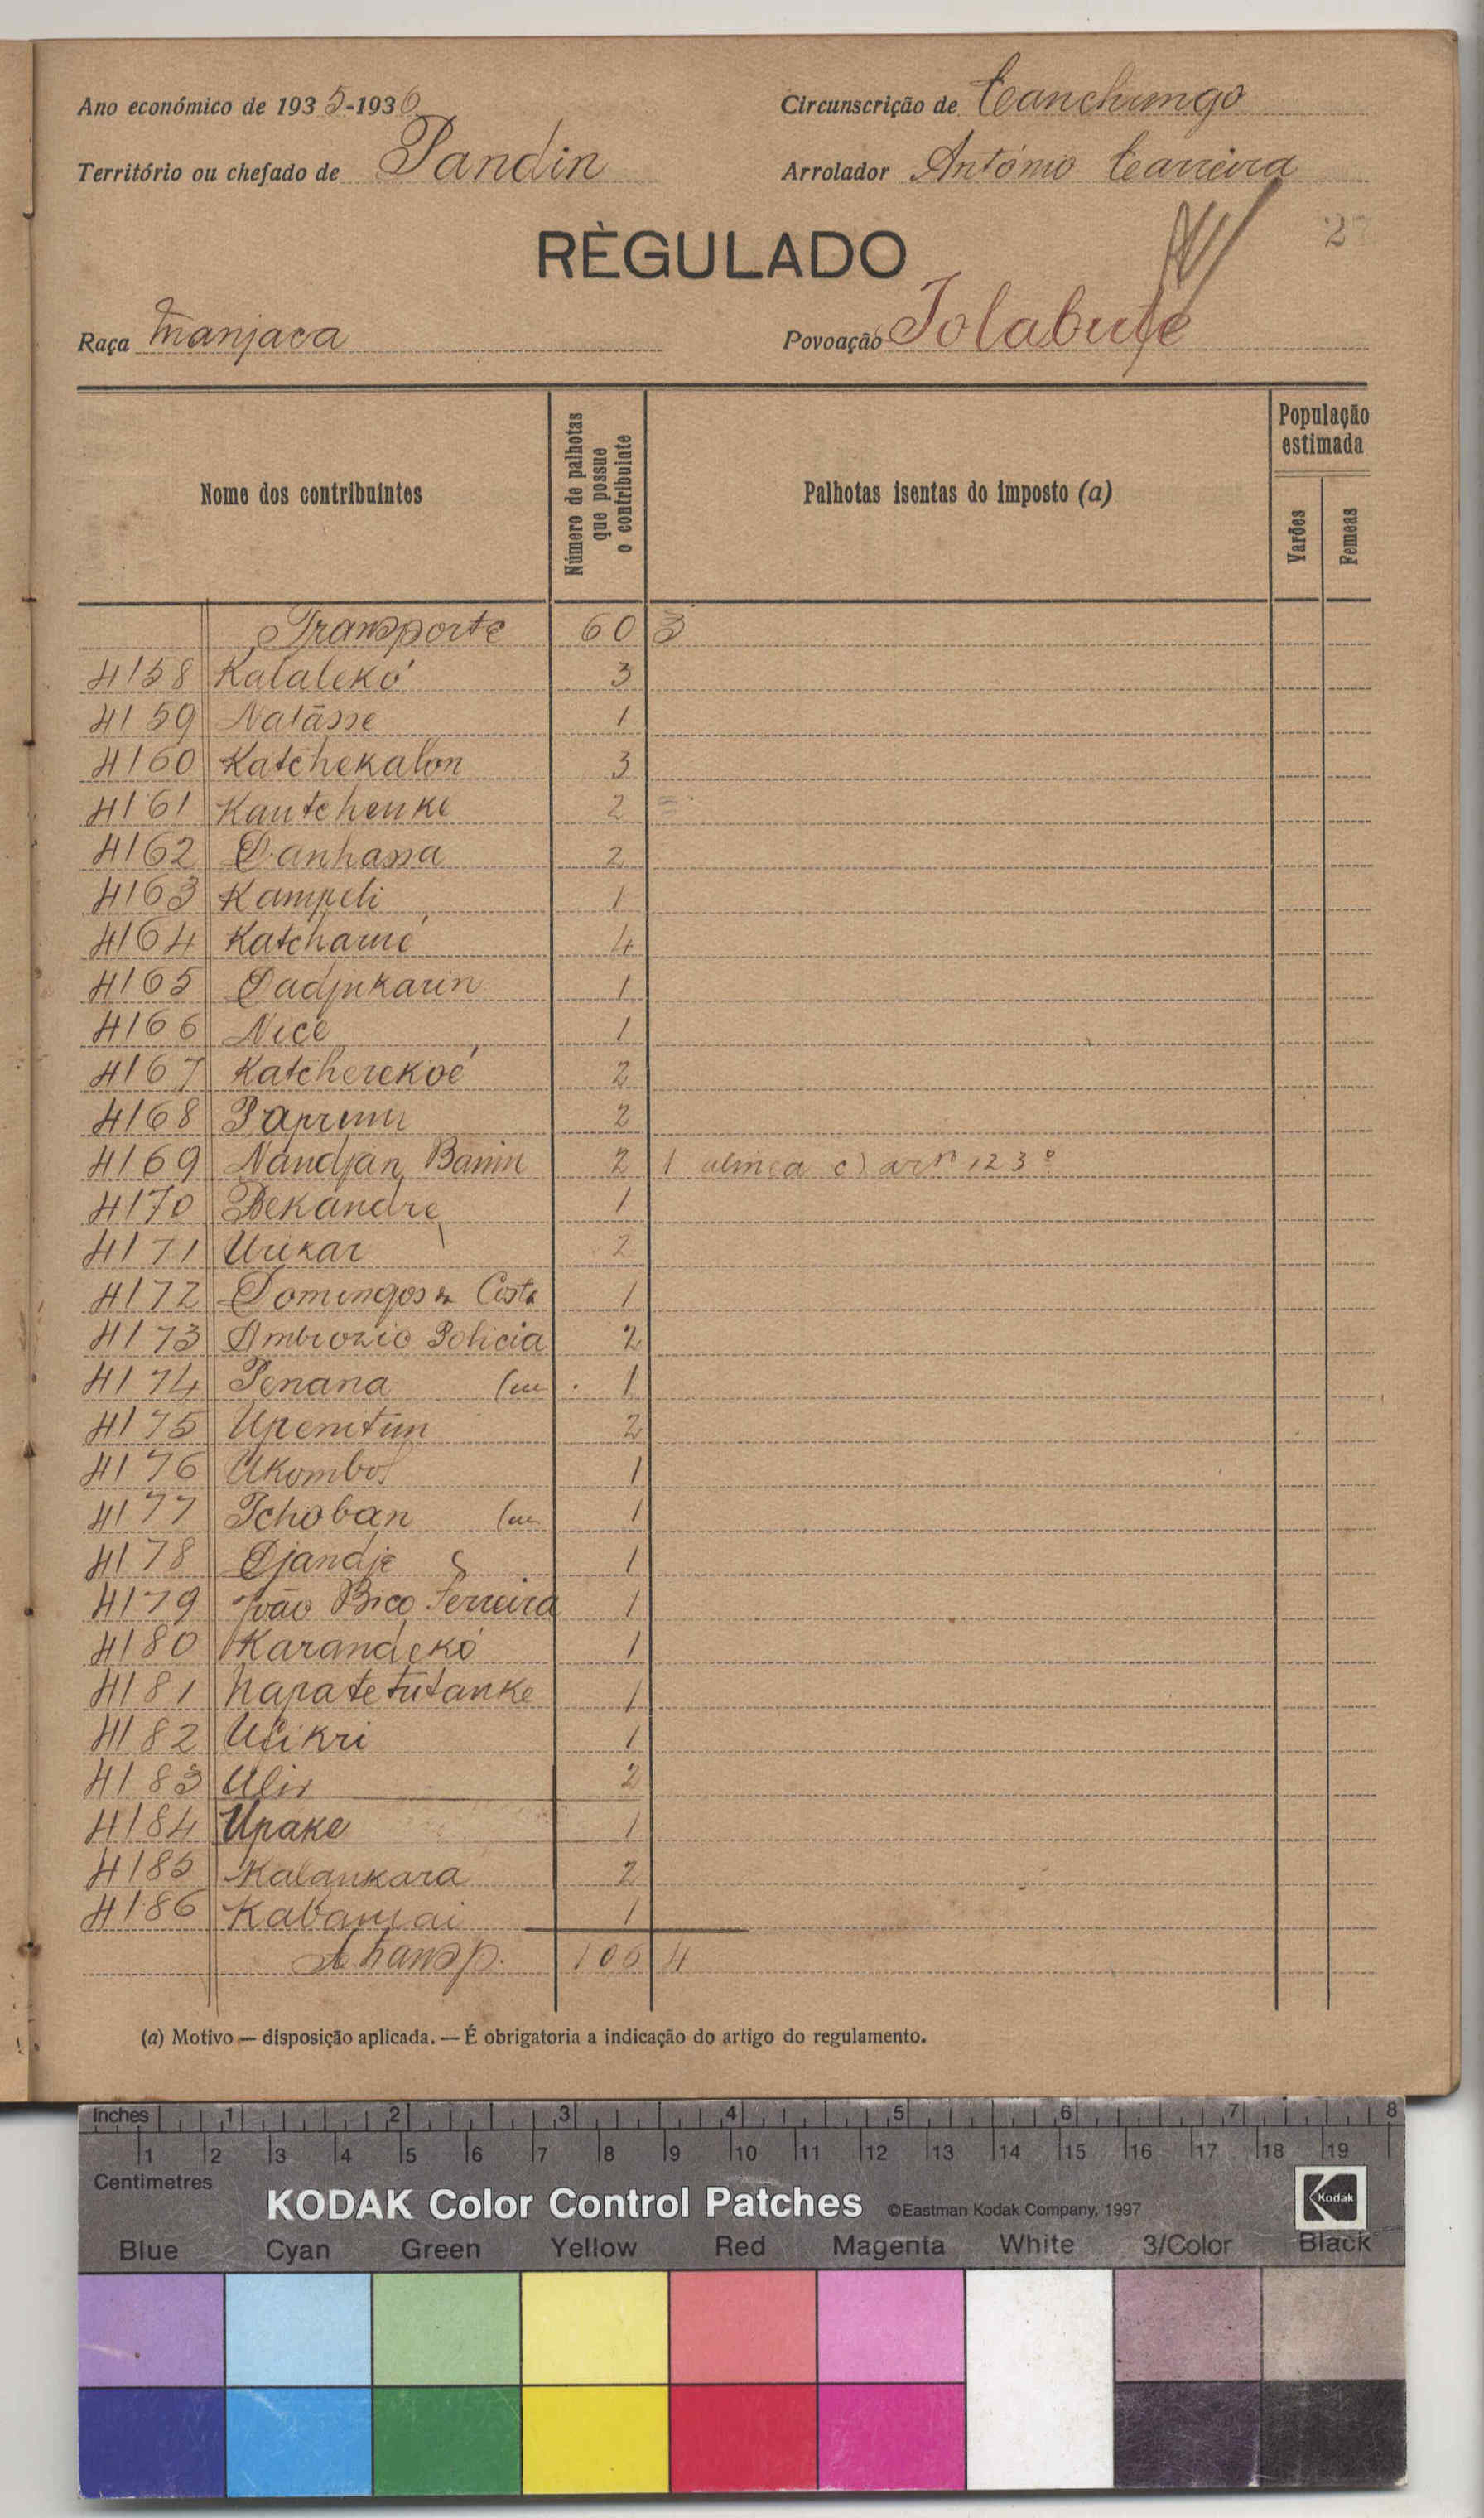 Ano económico de 1935-1936
Circunscrição de Canchungo
Território ou chefado de Pandin
Arrolador António Carreira
27
RÈGULADO
Raça Manjaca
Povoação
Nome dos contribuintes
Número de palhotas que possue o contribuinte
Palhotas isentas do imposto (a)
População estimada
Varões
Femeas
Transporte 60 3
4158 Kalalekó 3
4159 Natãsse 1
4160 Katchekalon 3
4161 Kautchenke 2
4162 Danhassa 2
4163 Kampeli 1
4164 4
4165 1
4166 Nice 1
4167 Katcherekoé 2
4168 2
4169 Nandjan 2 1 alinea c) artº 123º
4170 Bekandre 1
4171 Urikar 2
4172 Domingos da Costa 1
4173 Ambrozio Policia 2
4174 Penana 1
4175 2
4176 1
4177 Tchoban 1
4178 Djandje 1
4179 João Bico Ferreira 1
4180 Karandekó 1
4181 Napatetutanke 1
4182 1
4183 2
4184 Upake 1
4185 Kalankara 2
4186 1
106 4
(a) Motivo — disposição aplicada. — É obrigatoria a indicação do artigo do regulamento.
Inches 1 2 3 4 5 6 7 8
1 2 3 4 5 6 7 8 9 10 11 12 13 14 15 16 17 18 19
Centimetres
KODAK Color Control Patches ©Eastman Kodak Company, 1997 Kodak
Blue Cyan Green Yellow Red Magenta White 3/Color Black